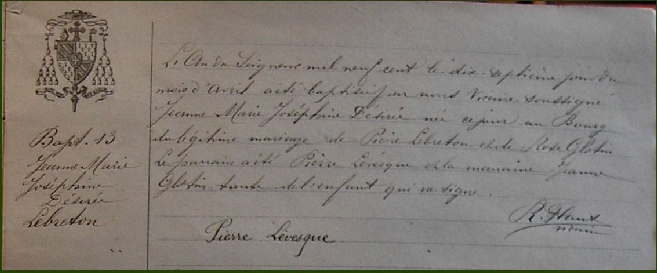 Bapt. 13
Jeanne Marie
Joséphine
Désirée
Lebreton
L'An du Seigneur mil neuf cent le dix-septième jour du
mois d'Avril a été baptisée par nous Vicaire soussigné
Jeanne Marie Joséphine Désirée née ce jour au Bourg
du légitime mariage de Pierre Lebreton et de Rose Glotin
Le parrain a été Pierre Levesque et la marraine Jeanne
Glotin tante de l'enfant qui ne signe.
Pierre Lévesque
R.
vicaire